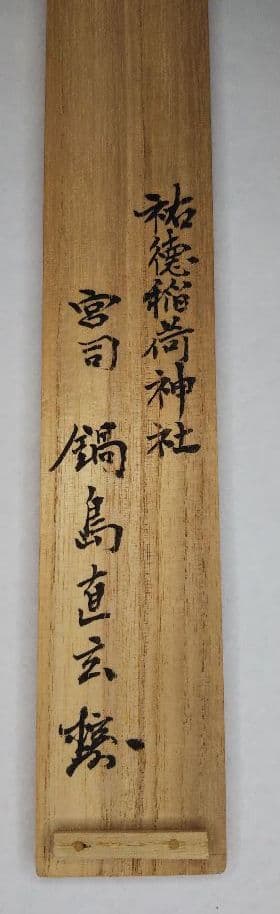 祐徳稲荷神社
宮司 鍋島直玄